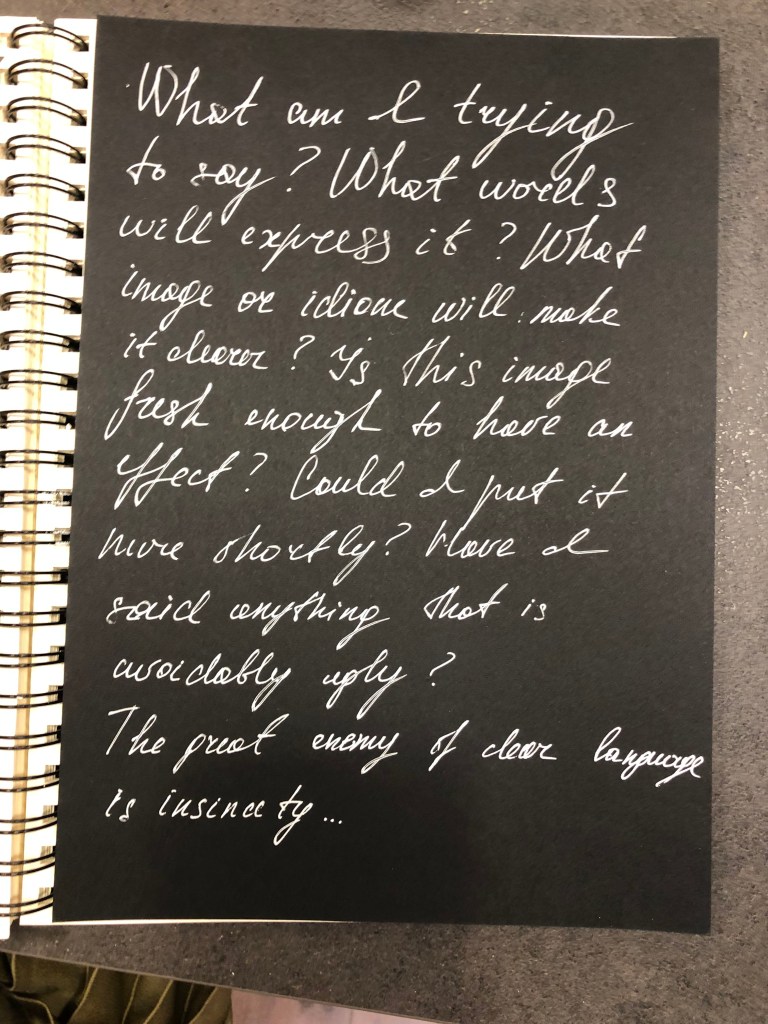 What am I trying
to say? What words
will express it? What
image or idiom will make
it clearer? Is this image
fresh enough to have an
effect? Could I put it
more shortly? Have I
said anything that is
avoidably ugly?
The great enemy of clear language
is insincity...